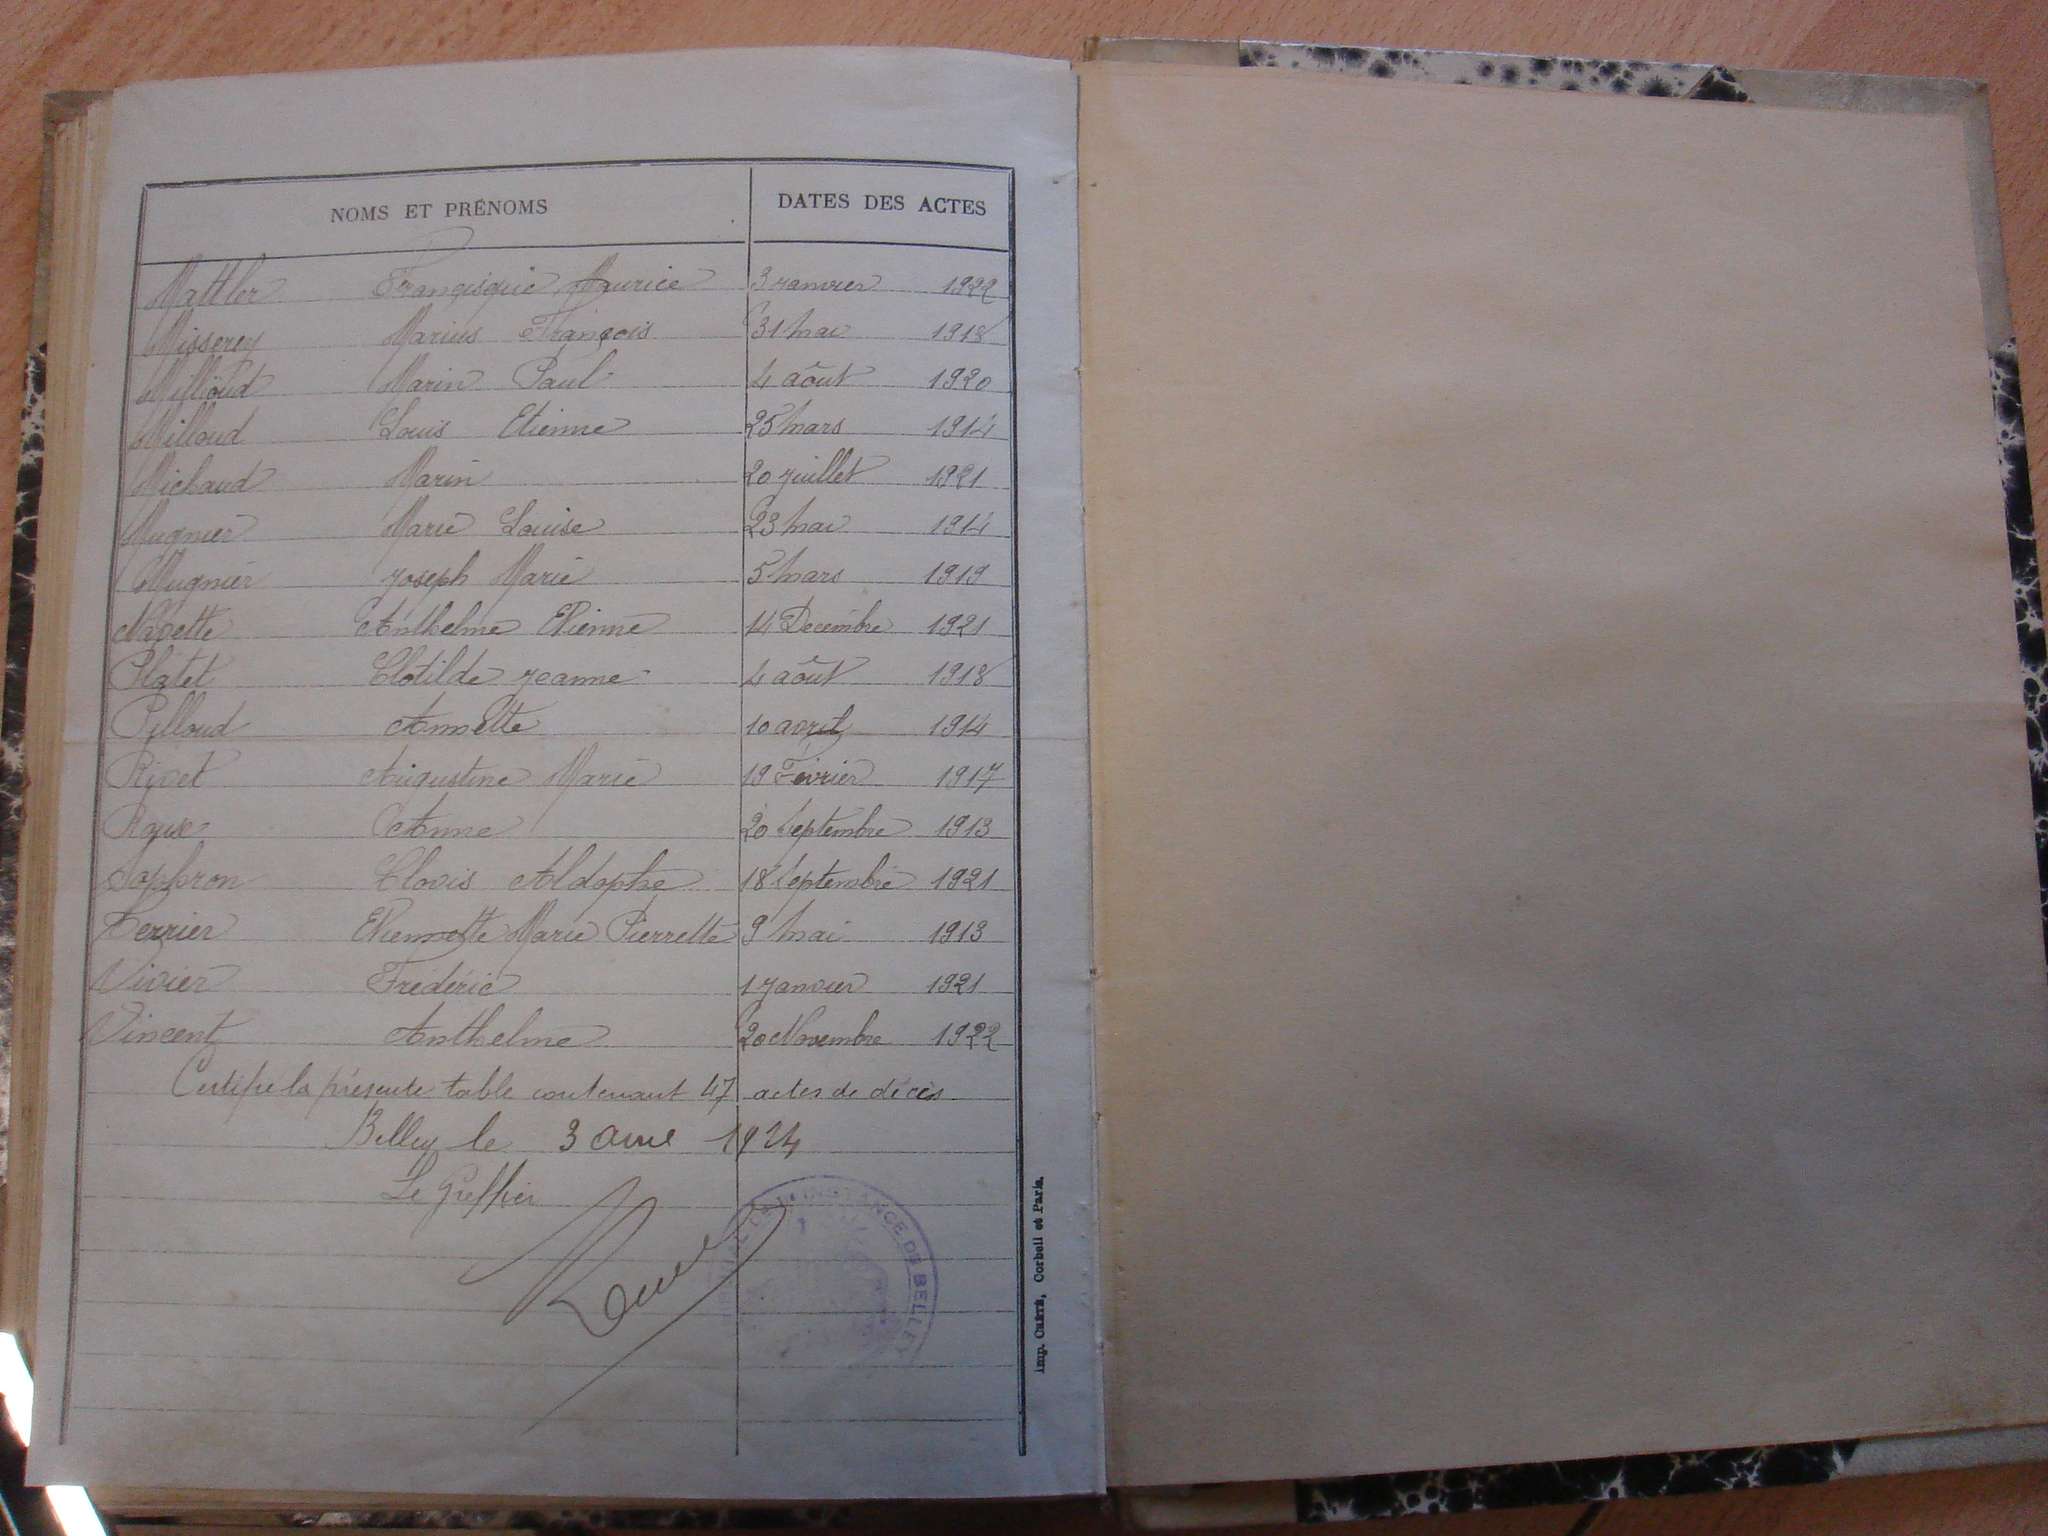 NOMS ET PRÉNOMS DATES DES ACTES
Mattler Françisque Maurice 3 janvier 1922
Misserey Marius François 31 mai 1918
Milloud Marin Paul 4 août 1920
Milloud Louis Etienne 25 mars 1914
Michaud Marin 20 juillet 1921
Mugnier Marie Louise 23 mai 1914
Mugnier Joseph Marie 5 mars 1919
Navette Anthelme Etienne 14 Decembre 1921
Platet Clotilde Jeanne 4 août 1918
Pilloud Annette 10 avril 1914
Rivet Augustine Marie 19 Février 1917
Roux Anne 20 Septembre 1913
Saphron Clovis Aldophe 18 Septembre 1921
Perrier Etiennette Marie Pierrette 9 mai 1913
Vivier Frédéric 1 janvier 1921
Vincent Anthelme 20 Novembre 1922
Certifié la présente table contenant 47 actes de décès
Belley le 3 1924
Le Greffier
INSTANCE DE BELLEY
Imp. CRÉTÉ, Corbeil et Paris.